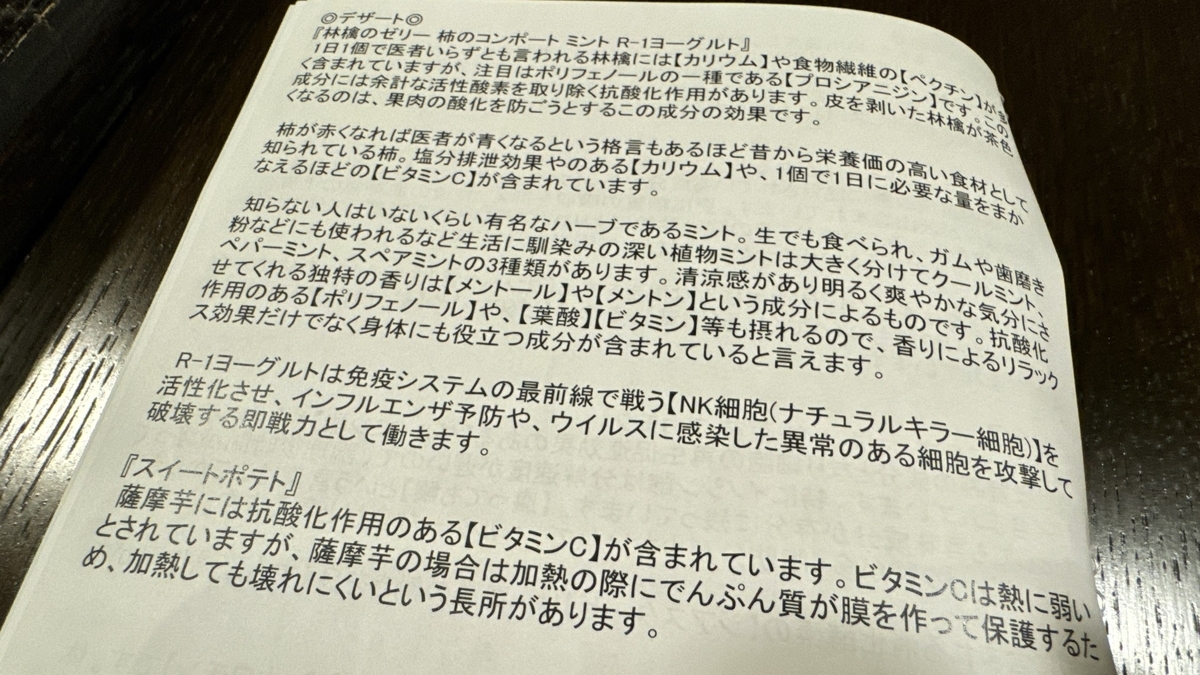 ◎デザート◎
『林檎のゼリー 柿のコンポート ミント R-1ヨーグルト』
1日1個で医者いらずとも言われる林檎には【カリウム】や食物繊維の【ペクチン】が
く含まれていますが、注目はポリフェノールの一種である【プロシアニジン】です。この
成分には余計な活性酸素を取り除く抗酸化作用があります。皮を剥いた林檎が茶色
くなるのは、果肉の酸化を防ごうとするこの成分の効果です。
柿が赤くなれば医者が青くなるという格言もあるほど昔から栄養価の高い食材として
知られている柿。塩分排泄効果やのある【カリウム】や、1個で1日に必要な量をまか
なえるほどの【ビタミンC】が含まれています。
知らない人はいないくらい有名なハーブであるミント。生でも食べられ、ガムや歯磨き
粉などにも使われるなど生活に馴染みの深い植物ミントは大きく分けてクールミント、
ペパーミント、スペアミントの3種類があります。清涼感があり明るく爽やかな気分にさ
せてくれる独特の香りは【メントール】や【メントン】という成分によるものです。抗酸化
作用のある【ポリフェノール】や、【葉酸】【ビタミン】等も摂れるので、香りによるリラック
ス効果だけでなく身体にも役立つ成分が含まれていると言えます。
R-1ヨーグルトは免疫システムの最前線で戦う【NK細胞(ナチュラルキラー細胞)】を
活性化させ、インフルエンザ予防や、ウイルスに感染した異常のある細胞を攻撃して
破壊する即戦力として働きます。
『スイートポテト』
薩摩芋には抗酸化作用のある【ビタミンC】が含まれています。ビタミンCは熱に弱い
とされていますが、薩摩芋の場合は加熱の際にでんぷん質が膜を作って保護するた
め、加熱しても壊れにくいという長所があります。